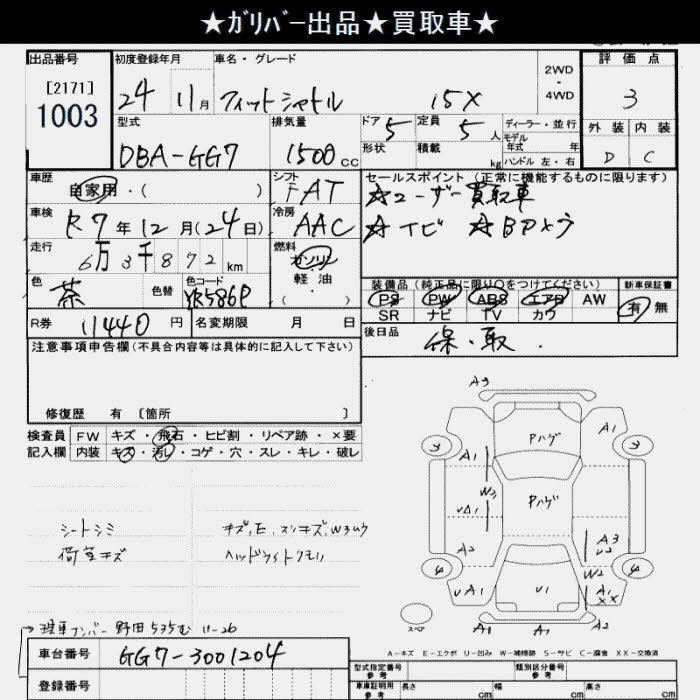 ★ｶﾞﾘﾊﾞｰ出品★買取車★
出品番号 初度登録年月 車名・グレード 2WD・4WD 評価点
[2171] 1003 24 11月 フィットシャトル 15X 3
型式 排気量 ドア 定員 ディーラー・並行 外装 内装
DBA-GG7 1500cc 5 5人 モデル年式 年 D C
形状 積載 kg ハンドル 左・右
車歴 シフト セールスポイント (正常に機能するものに限ります)
自家用・( ) FAT ☆ユーザー買取車
車検 R7年12月(24日) 冷房 AAC ☆ナビ
走行 6万3千872km 燃料 ガソリン 軽油 ( )
装備品(純正品に限り○をつけてください) 新車保証書
色 茶 色替 色コード YR586P PS PW ABS エアB AW 有 無
SR ナビ TV カワ
R券 11440円 名変期限 月 日 後日品 保・取.
注意事項申告欄(不具合内容等は具体的に記入して下さい)
修復歴 有 [箇所 ]
検査員 FW キズ・飛石・ヒビ割・リペア跡・×要
記入欄 内装 キズ・汚レ・コゲ・穴・スレ・キレ・破レ
シートシミ キズ, E, スリキズ, Wスウ
荷室キズ ヘッドライトクモリ
A3
A1
Pハゲ
A1
Pハゲ
W3
A1
A2
A3
U2
W2
A1
××
U1
A1
A1
スペア
A-キズ E-エクボ U-凹み W-補修跡 S-サビ C-腐食 XX-交換済
現車ナンバー 野田 535 む 11-26
車台番号 GG7-3001204 型式指定番号 参考 類別区分番号 参考
登録番号 車庫証明用 参考 長さ cm 幅 cm 高さ cm